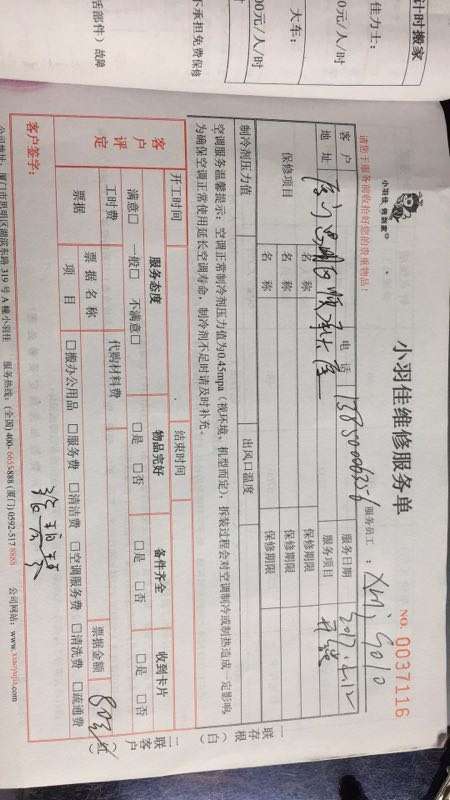 计时搬家
佳力士：
0元/人/时
大车：
00元/人/时
不承担免费保修
括部件）故障
小羽佳，俺到家
小羽佳维修服务单
NO. 0037116
请您于服务前收拾好您的贵重物品：
服务员工：
客户
电话
服务日期
2017.
地址
服务项目
保修项目
名称
保修期限
名称
保修期限
名称
保修期限
制冷剂压力值
出风口温度
空调服务温馨提示：空调正常制冷剂压力值为0.45mpa（视环境、机型而定），拆装过程会对空调制冷或制热造成一定影响，
为确保空调正常使用延长空调寿命，制冷剂不足时请及时补充。
开工时间
结束时间
客户评定
服务态度
物品完好
备件齐全
收到卡片
满意□ 一般□ 不满意□
□是 □否
□是 □否
□是 □否
工时费
代购材料费
票据
票据名称
票据金额
项目
□搬办公用品 □服务费 □清洁费 □空调服务费 □清洗费 □疏通费
客户签字：
一联存根（白）
二联客户（红）
公司地址：厦门市思明区湖滨东路 319 号 A 幢小羽佳 服务热线：(全国) 400-6655888 (厦门) 0592-517 8888 公司网站：www.xiaoyujia.com